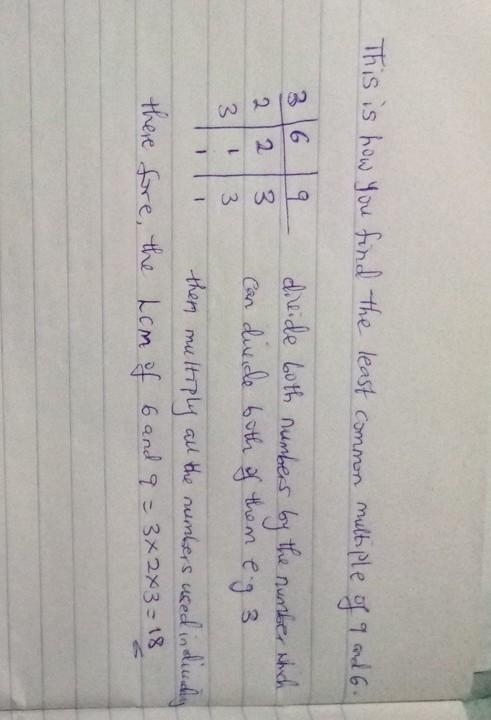 This is how you find the least common multiple of 9 and 6.
3 6 9 divide both numbers by the number which
2 2 3 can divide both of them e.g 3
3 1 3
1 1 then multiply all the numbers used in dividing
there fore, the Lcm of 6 and 9 = 3x2x3=18